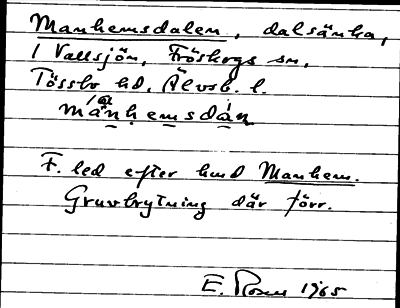 Manhemsdalen, dalsänka,
i Vallsjön, Fröskogs sn,
Tössbo hd, Älvsb. l.
mánhemsdàn
F. led efter hmd Manhem.
Gruvbrytning där förr.
E. Rosen 1965